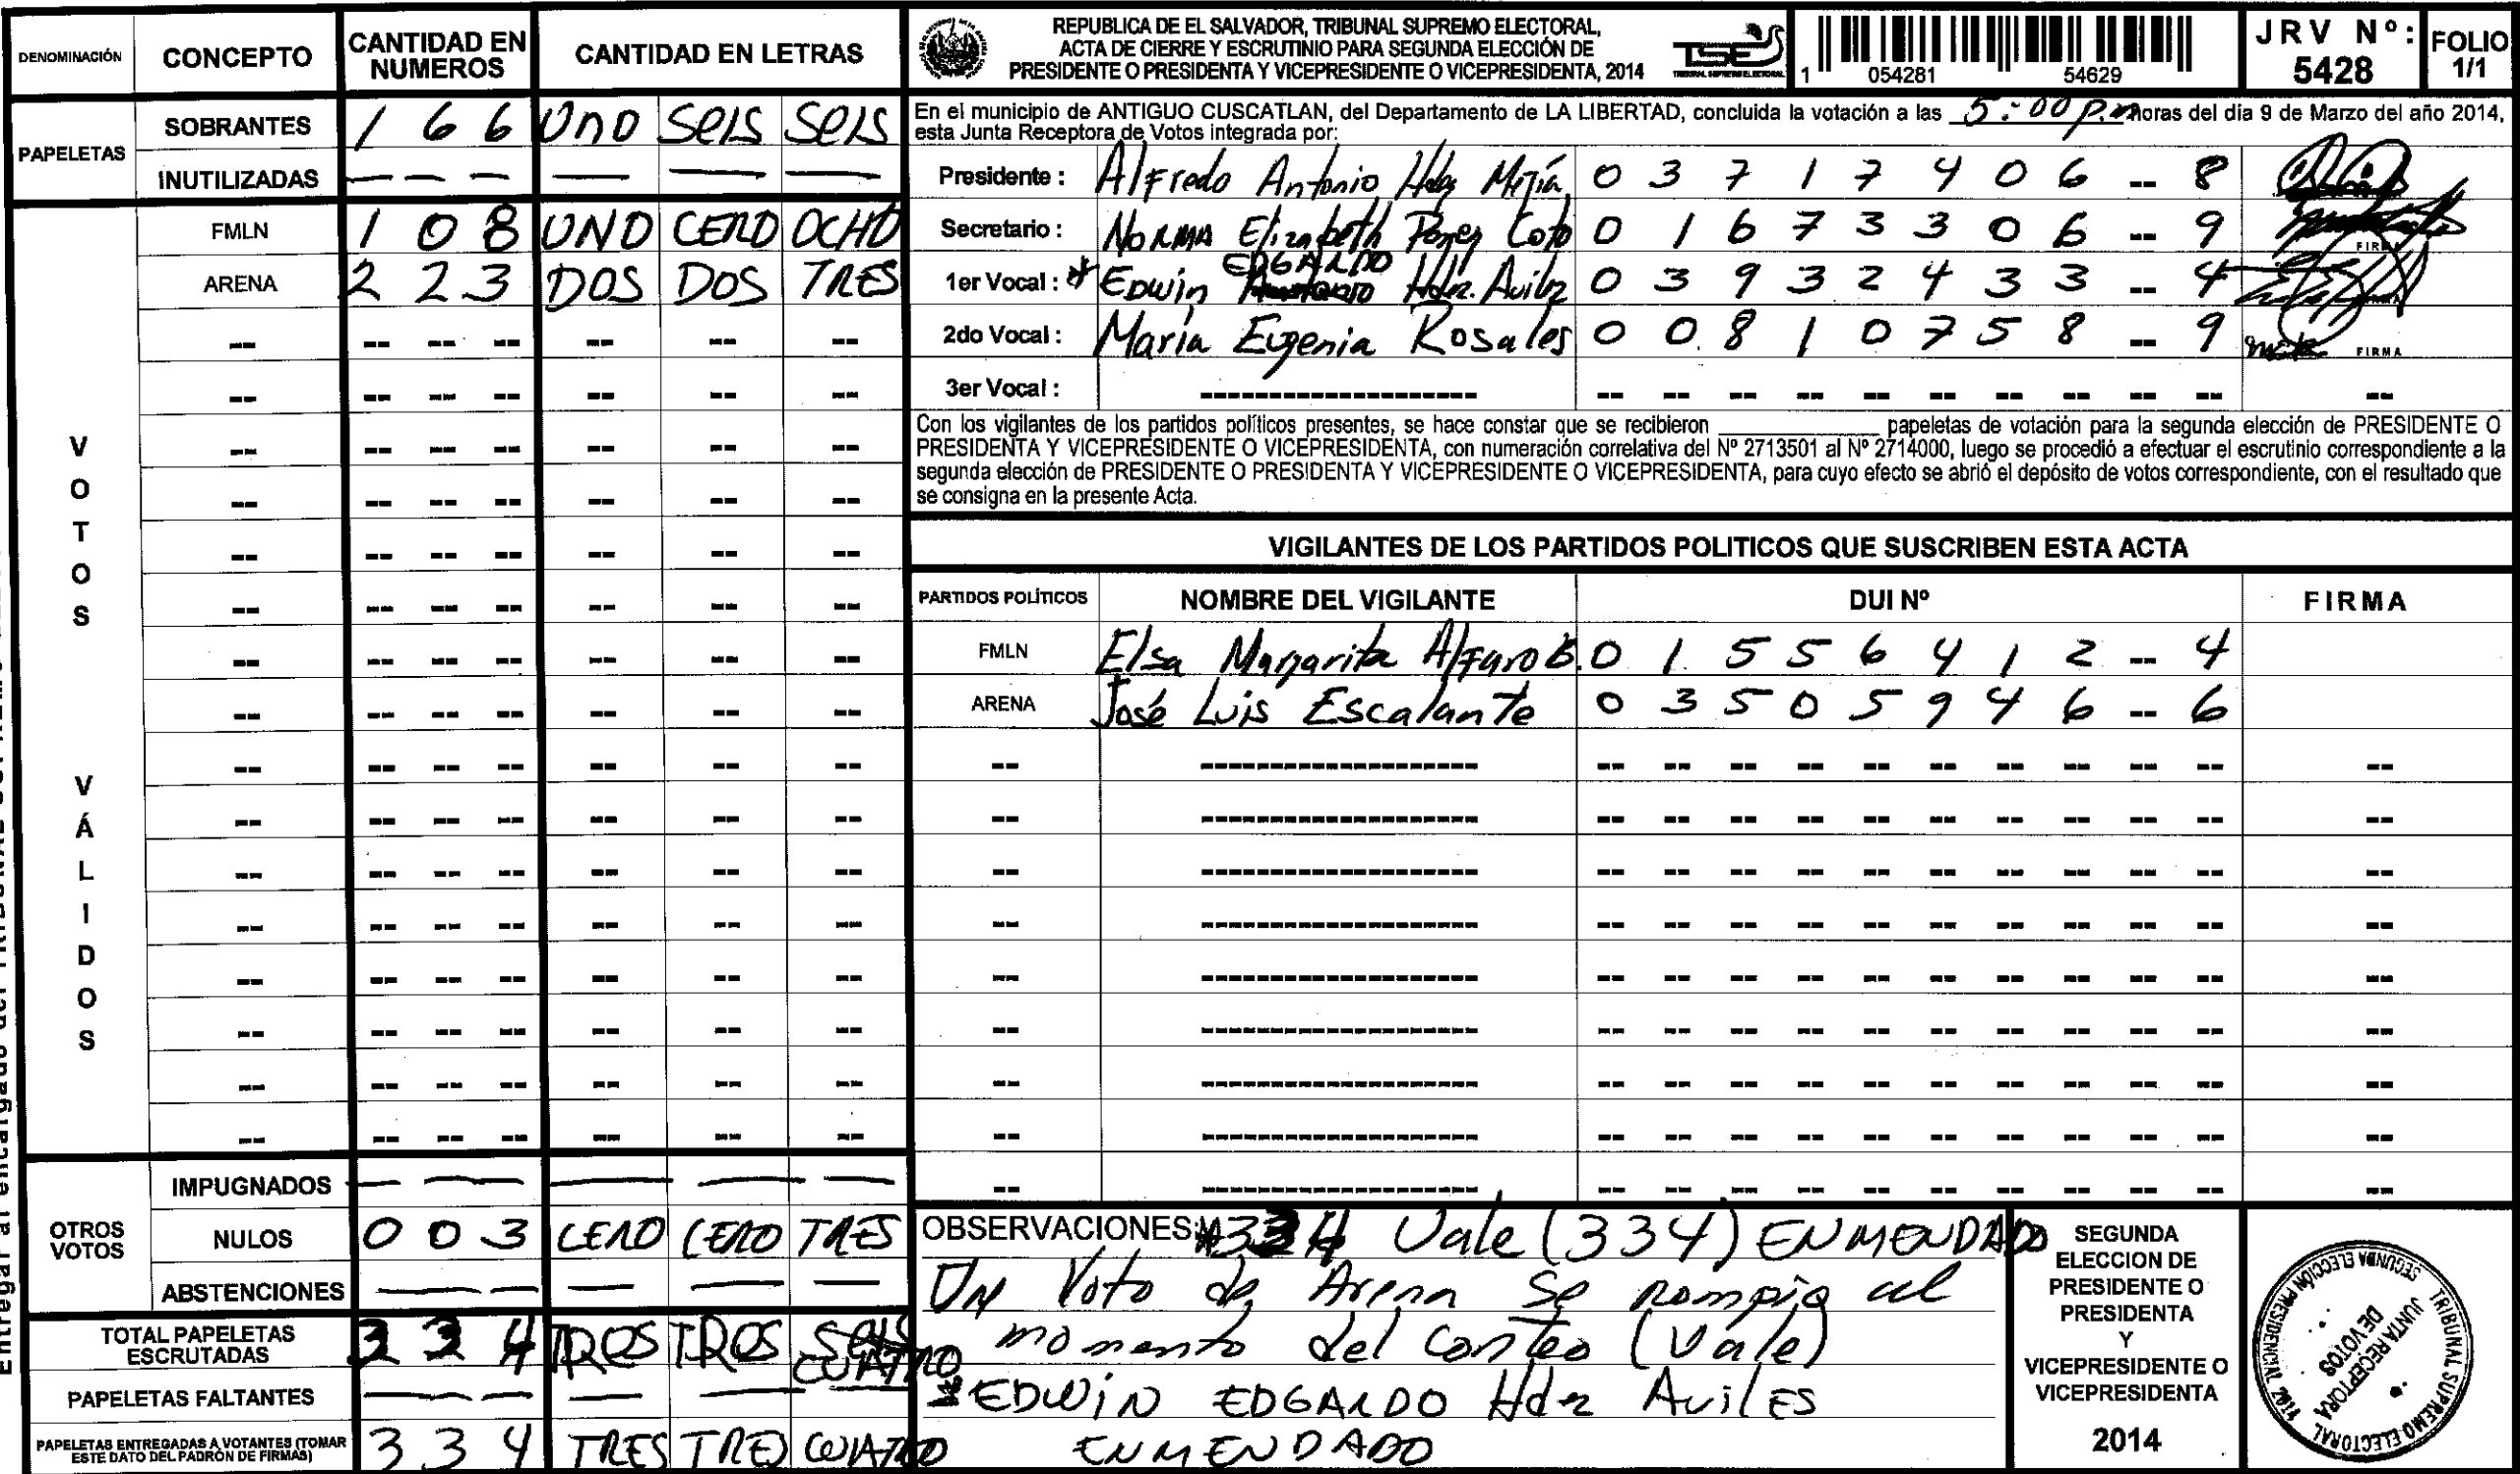 DENOMINACIÓN CONCEPTO CANTIDAD EN NUMEROS CANTIDAD EN LETRAS
PAPELETAS
SOBRANTES 1 6 6 UNO SEIS SEIS
INUTILIZADAS — — — — — —
VOTOS VÁLIDOS
FMLN 1 0 8 UNO CERO OCHO
ARENA 2 2 3 DOS DOS TRES
OTROS VOTOS
IMPUGNADOS — — — — — —
NULOS 0 0 3 CERO CERO TRES
ABSTENCIONES — — — — — —
TOTAL PAPELETAS ESCRUTADAS 3 3 4 TRES TRES CUATRO
PAPELETAS FALTANTES — — — — — —
PAPELETAS ENTREGADAS A VOTANTES (TOMAR ESTE DATO DEL PADRÓN DE FIRMAS) 3 3 4 TRES TRE CUATRO
REPUBLICA DE EL SALVADOR, TRIBUNAL SUPREMO ELECTORAL,
ACTA DE CIERRE Y ESCRUTINIO PARA SEGUNDA ELECCIÓN DE
PRESIDENTE O PRESIDENTA Y VICEPRESIDENTE O VICEPRESIDENTA, 2014
TSE
TRIBUNAL SUPREMO ELECTORAL
1 054281 54629
JRV Nº: 5428
FOLIO 1/1
En el municipio de ANTIGUO CUSCATLAN, del Departamento de LA LIBERTAD, concluida la votación a las 5:00 p.m horas del dia 9 de Marzo del año 2014,
esta Junta Receptora de Votos integrada por:
Presidente : Alfredo Antonio Hdez Mejía 0 3 7 1 7 4 0 6 -- 8
Secretario : NORMA Elizabeth Coto 0 1 6 7 3 3 0 6 -- 9 FIRMA
1er Vocal : * EDWin EDGARDO Hdz. Avilz 0 3 9 3 2 4 3 3 -- 4
2do Vocal : María Eugenia Rosales 0 0 8 1 0 7 5 8 -- 9 FIRMA
3er Vocal :
Con los vigilantes de los partidos políticos presentes, se hace constar que se recibieron ____________ papeletas de votación para la segunda elección de PRESIDENTE O
PRESIDENTA Y VICEPRESIDENTE O VICEPRESIDENTA, con numeración correlativa del Nº 2713501 al Nº 2714000, luego se procedió a efectuar el escrutinio correspondiente a la
segunda elección de PRESIDENTE O PRESIDENTA Y VICEPRESIDENTE O VICEPRESIDENTA, para cuyo efecto se abrió el depósito de votos correspondiente, con el resultado que
se consigna en la presente Acta.
VIGILANTES DE LOS PARTIDOS POLITICOS QUE SUSCRIBEN ESTA ACTA
PARTIDOS POLÍTICOS NOMBRE DEL VIGILANTE DUI Nº FIRMA
FMLN Elsa Margarita Alfaro B. 0 1 5 5 6 4 1 2 -- 4
ARENA José Luis Escalante 0 3 5 0 5 9 4 6 -- 6
OBSERVACIONES: 334 Vale (334) ENMENDADO
UN Voto de Arena Se rompio al
momento del Conteo (Vale)
*EDWiN EDGARDO Hdz AvilES
ENMENDADO
SEGUNDA
ELECCION DE
PRESIDENTE O
PRESIDENTA
Y
VICEPRESIDENTE O
VICEPRESIDENTA
2014
TRIBUNAL SUPREMO ELECTORAL
SEGUNDA ELECCIÓN PRESIDENCIAL 2014
JUNTA RECEPTORA
DE VOTOS